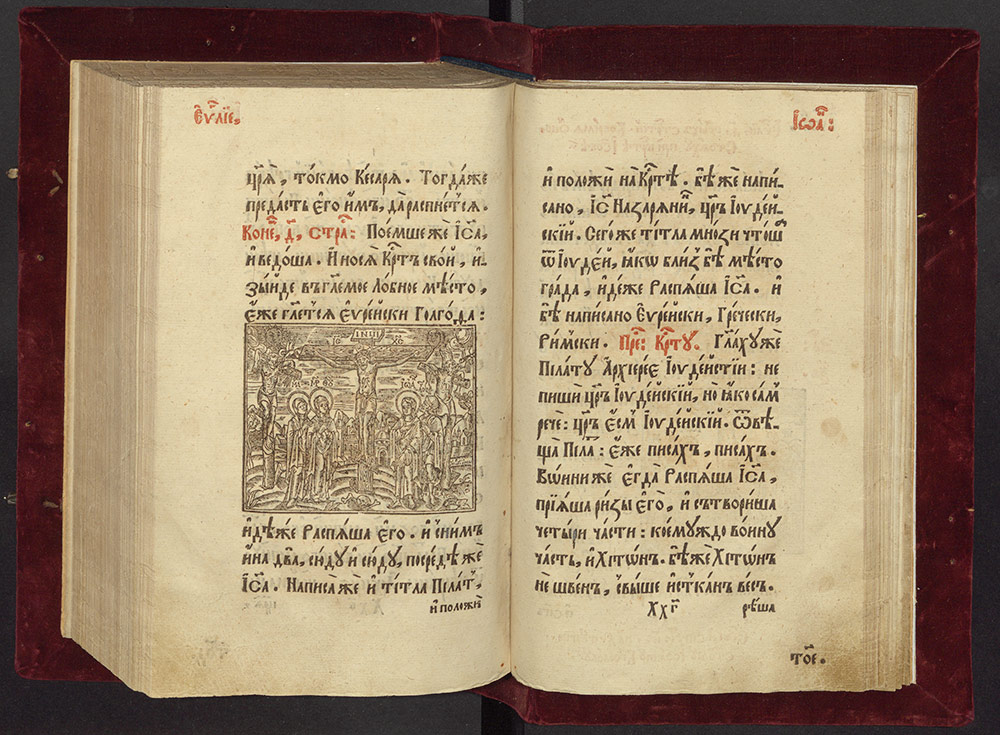 Єѵⷢ҇лїе,
цр҃ѧ̀, то́кмо Кесарѧ. Тогда́же
преда́сть є҆го̀ и҆̀мъ, да̀распне́тсѧ.
Коне́ⷰ҇, д҃, стра̑: Пое́мшеже І҆с҃а,
и҆ ведо́ша. И҆ носѧ̀ Крⷭ҇тъ сво́й, и҆-
зы́йде въ гл҃емое Ло́бное мѣ́сто,
є҆́же гл҃етсѧ Є҆ѵре́йски Голго́да:
ІНЦІ
ІС ХС
и҆дѣ́же Распѧ́ша є҆го̀. и҆ сни́мъ
и҆́на два̀, сю́ду и҆ сю́ду, посредѣ́ же
І҆с҃а. Написа́же и҆ ті́тла Піла́т,
и҆ положѝ
Іѡа́ⷩ҇:
и҆ положѝ на Крⷭ҇тѣ̀. бѣ́ же напи-
сано, І҆с҃ Назарѧни́н, цр҃ъ І҆ꙋде́й-
скїй. Сего́же ті́тла мно́зи что́ша
ѿ І҆ꙋде́й, ꙗ҆́кѡ бли́з бѣ̀ мѣ́сто
гра́да, и҆дѣ́же Распѧ́ша І҆с҃а. и҆
бѣ̀ напи́сано Є҆ѵре́йски, Гре́чески,
Ри́мски. Пре́ⷣ: Крⷭ҇тꙋ. Гл҃ахꙋ́же
Піла́тꙋ А҆рхїере́є І҆ꙋде́йстїи: не
пишѝ цр҃ъ І҆ꙋде́йскїй, но ꙗ҆́ко са́м
речѐ: цр҃ъ є҆́см І҆ꙋде́йскїй. Ѿвѣ-
ща̀ Піла́ⷮ: є҆́же писа́хъ, писа́хъ.
Во́иниже є҆гда̀ Распѧ́ша І҆с҃а,
прїѧ́ша ри́зы є҆го̀, и҆ сътвори́ша
четы́ри ча́сти: коемꙋ́ждо во́инꙋ
ча́сть, и҆ Хїтѡ́нъ. бѣ́же Хїтѡ́нъ
не шве́нъ, свы́ше и҆стка́нъ ве́сь.
хкг҃ рѣ́ша
то́е.